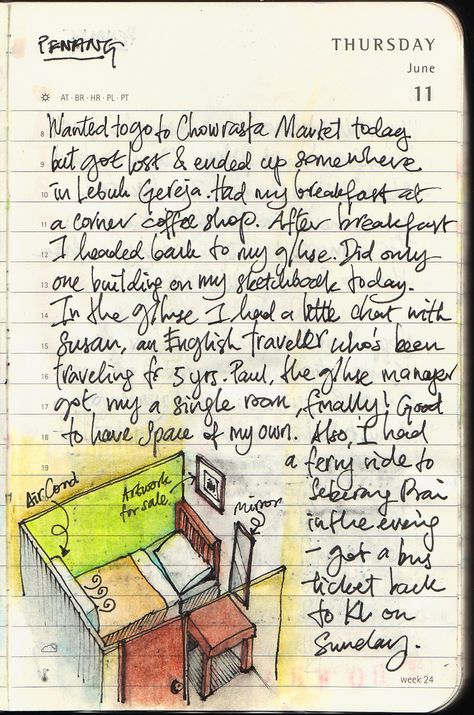 PENANG
THURSDAY
June
11
AT • BR • HR • PL • PT
8 Wanted to go to Chowrasta Market today
9 but got lost & ended up somewhere
10 in Lebuh Gereja. Had my breakfast at
a corner coffee shop. After breakfast
12 I headed back to my g/hse. Did only
13 one building on my sketchbook today.
14 In the g/hse I had a little chat with
15 Susan, an English traveller who's been
16 traveling fr 5 yrs. Paul, the g/hse manager
17 got my a single room, finally! Good
18 to have space of my own. Also, I had
19 a ferry ride to
Seberang Prai
in the evening
- got a bus
ticket back
to KL on
Sunday.
Air Cond
Artwork
for sale
mirror
week 24